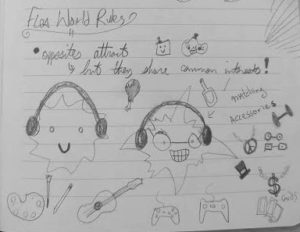 World Rules
• opposites attract
↳ but they share common interests!
matching
accessories
$